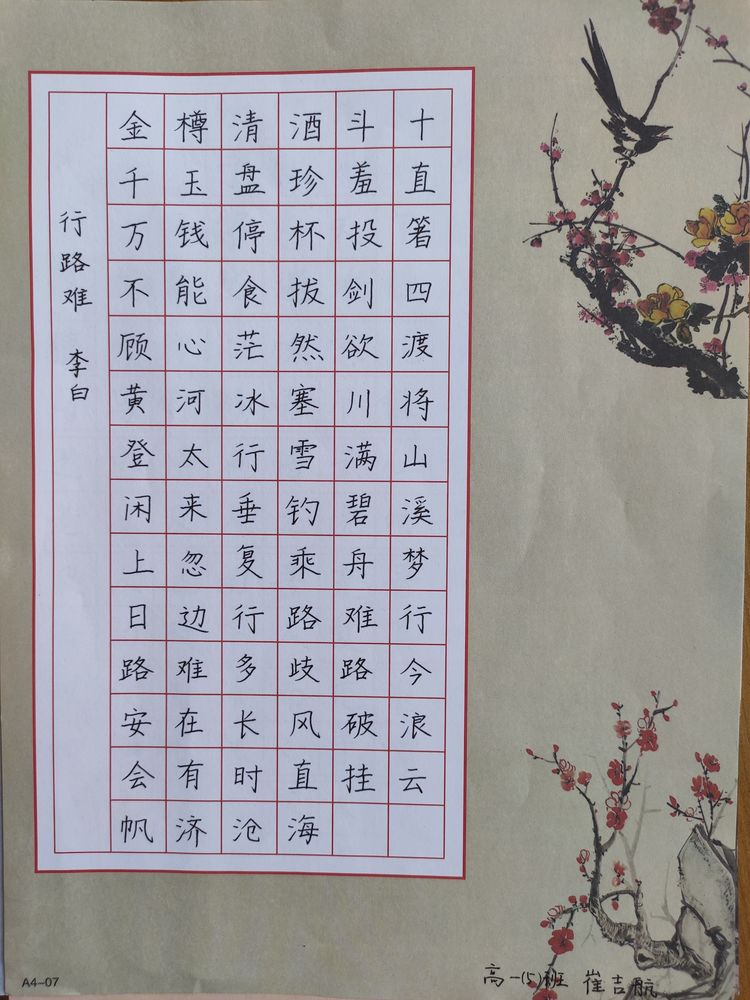 行路难 李白
金樽清酒斗十
千玉盘珍羞直
万钱停杯投箸
不能食拔剑四
顾心茫然欲渡
黄河冰塞川将
登太行雪满山
闲来垂钓碧溪
上忽复乘舟梦
日边行路难行
路难多歧路今
安在长风破浪
会有时直挂云
帆济沧海
高一(5)班 崔吉航
A4-07